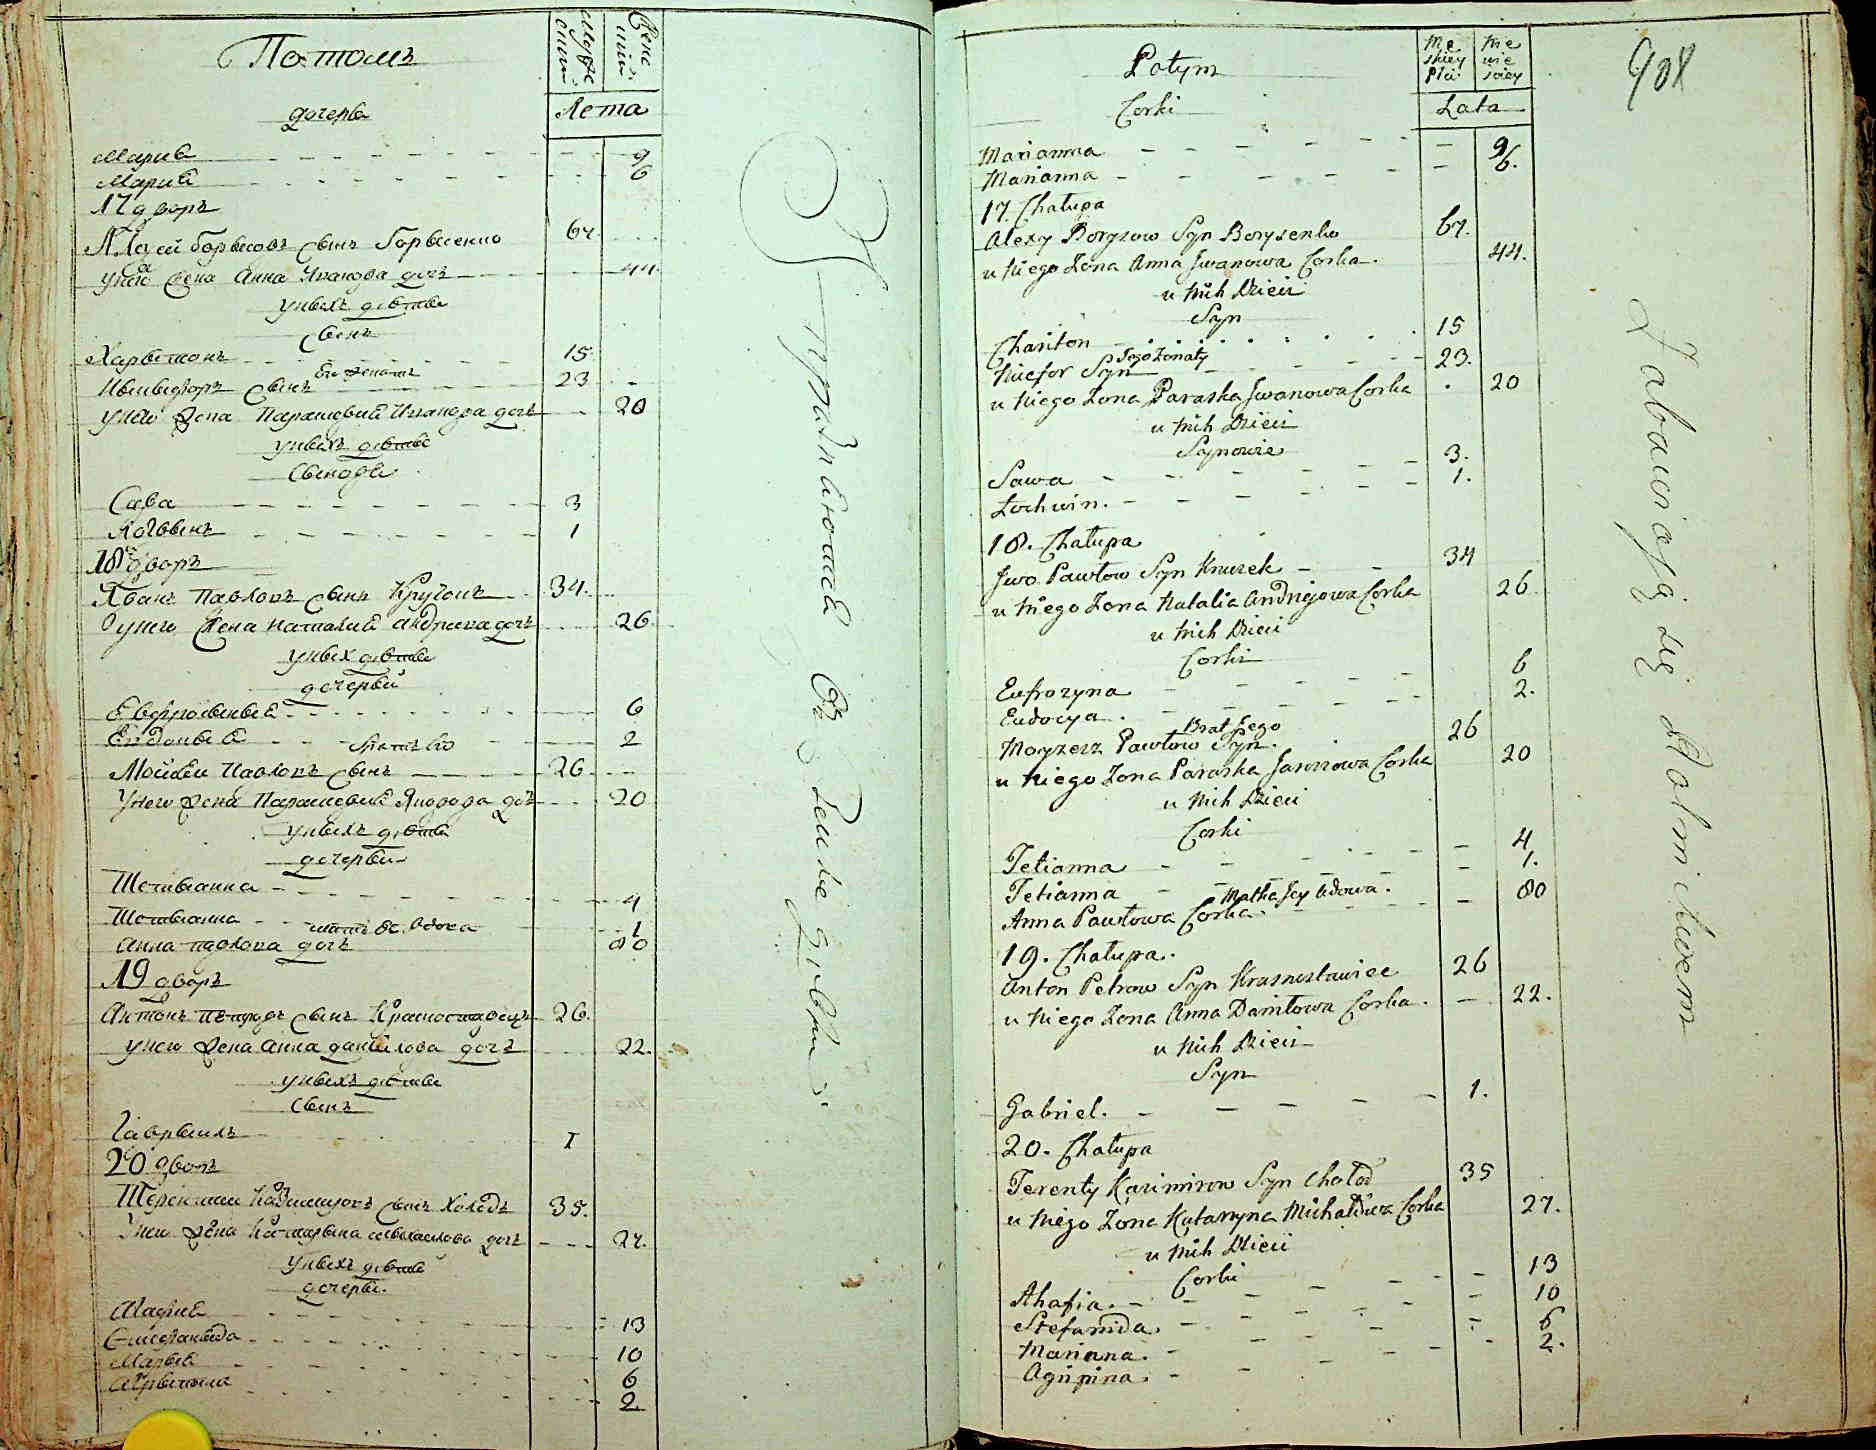 Потомъ
Мужес
кій
Женс
кій
Лета
дочеры
Мария 9
Мария 6
17 дворъ
Алексей Борисовъ сынъ Борисенко 67.
у него жена Анна Иванова дочь 44.
у ныхъ дети
сынъ
Харытонъ 15.
Его женатъ
Ныкыфоръ сынъ 23
у него жена Парасковия Иванова дочь 20
у ныхъ дети
сынове
Сава 3
Логвынъ 1
18 дворъ
Иванъ Павловъ сынъ 34.
у него жена Наталия Андреева дочь 26.
у ныхъ дети
дочеры
Евфросыния 6
Евдокыя 2
братъ его
Мойсей Павловъ сынъ 26
у него жена Парасковия дочь 20
у ныхъ дети
дочеры
Тетыанна 4
Тетыанна 1
мать вдова
Анна Павлова дочь 80
19 дворъ
Антонъ Петровъ сынъ Красноставецъ 26.
у него жена Анна Данылова дочь 22.
у ныхъ дети
сынъ
Гаврыилъ 1
20 дворъ
Терентий Казимировъ сынъ Холодъ 35.
у него жена Катарына Мыхаилова дочь 27.
у ныхъ дети
дочеры
Агафия 13
Стефаныда 10
Мария 6
Агрыпина 2
Упражняюшая въ земледелии.
Potym
Mę
skiey
Płci
Nie
wie
sciey
Lata
908
Corki
Marianna 9
Marianna 6.
17. Chałupa
Alexy Borysow Syn Borysenko 67.
u niego Zona Anna Jwanowa Corka. 44.
u nich Dzieci
Syn
Chariton 15
Jego Zonaty
Nicefor Syn 23.
u niego Zona Paraska Jwanowa Corka 20
u nich Dzieci
Synowie
Sawa 3.
Łochwin. 1.
18. Chałupa
Jwo Pawłow Syn Knurek 34
u niego Zona Natalia Andrzejowa Corka 26.
u nich Dzieci
Corki
Eufrozyna 6
Eudocya. 2.
Brat Jego
Moyzesz Pawłow Syn. 26
u niego Zona Paraska Corka 20
u nich Dzieci
Corki
Tetianna 4
Tetianna 1.
Matka Jey Wdowa.
Anna Pawłowa Corka. 80
19. Chałupa.
Anton Petrow Syn Krasnostawiec 26
u niego Zona Anna Daniłowa Corka. 22.
u nich Dzieci
Syn
Gabriel. 1.
20. Chałupa
Terenty Kazimirow Syn Chołod 35
u niego Zona Katarzyna Michałowa Corka 27.
u nich Dzieci
Corki
Ahafia. 13
Stefanida. 10
Marianna. 6
Agripina. 2.
Zabawiają się Rolnictwem